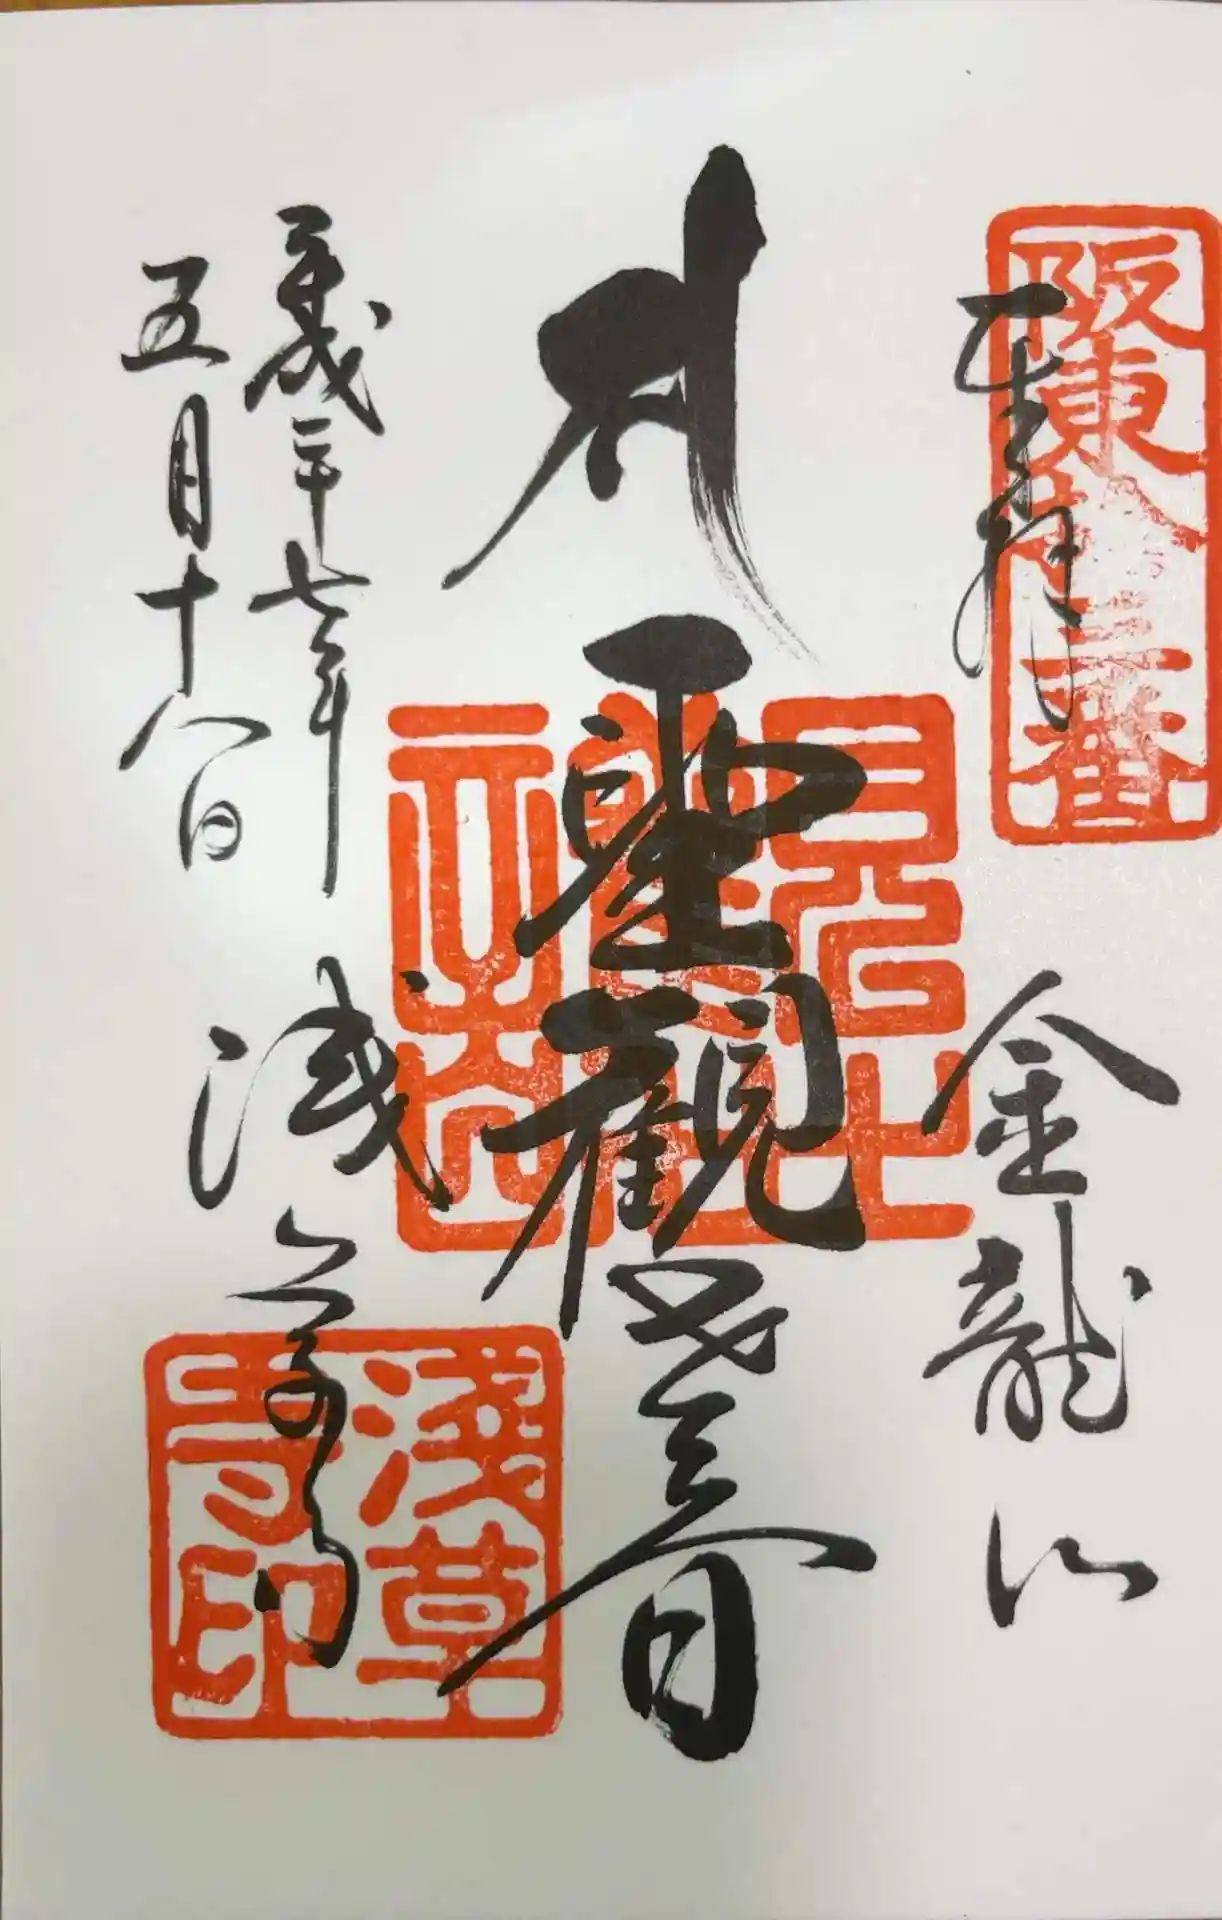 阪東十三番
奉拝
金龍山
聖観世音
平成二十七年
五月十八日
浅草寺
淺草寺印